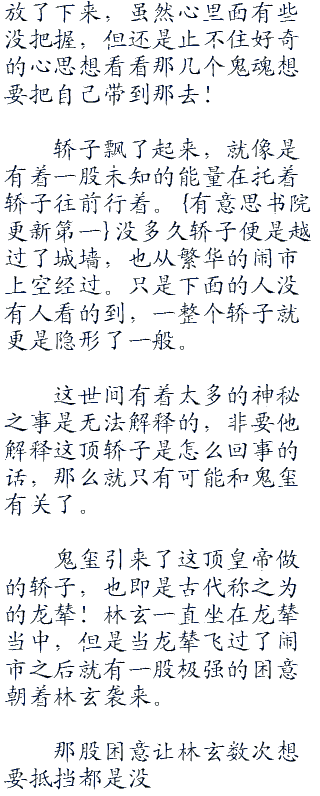 放了下来，虽然心里面有些
没把握，但还是止不住好奇
的心思想看看那几个鬼魂想
要把自己带到那去！
轿子飘了起来，就像是
有着一股未知的能量在托着
轿子往前行着。{有意思书院
更新第一}没多久轿子便是越
过了城墙，也从繁华的闹市
上空经过。只是下面的人没
有人看的到，一整个轿子就
更是隐形了一般。
这世间有着太多的神秘
之事是无法解释的，非要他
解释这顶轿子是怎么回事的
话，那么就只有可能和鬼玺
有关了。
鬼玺引来了这顶皇帝做
的轿子，也即是古代称之为
的龙辇！林玄一直坐在龙辇
当中，但是当龙辇飞过了闹
市之后就有一股极强的困意
朝着林玄袭来。
那股困意让林玄数次想
要抵挡都是没